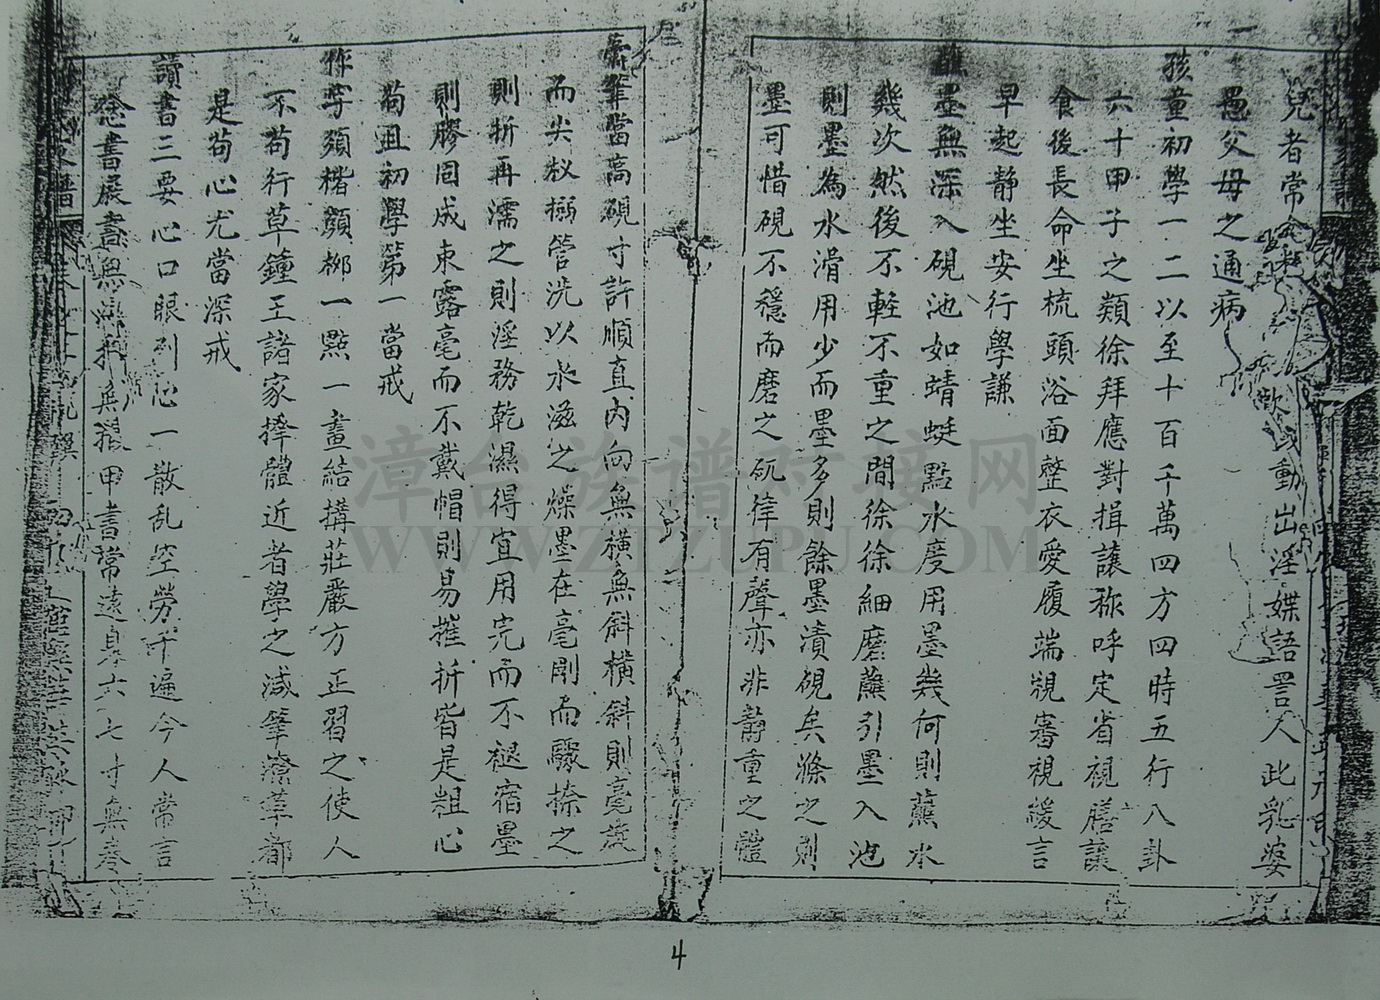 兒者常
動出淫媟語詈人此乳婆
愚父母之通病
孩童初學一二以至十百千萬四方四時五行八卦
六十甲子之類徐拜應對揖讓称呼定省視膳讓
食後長命坐梳頭浴面整衣愛履端覌審視緩言
早起静坐安行學謙
墨無深入硯池如蜻蜓點水度用墨幾何則蘸水
幾次然後不軽不重之間徐徐細磨蘸引墨入池
則墨為水滑用少而墨多則餘墨漬硯矣滌之則
墨可惜硯不穩而磨之矹硉有聲亦非静重之體
筆當高硯寸許順直內向無橫無斜橫斜則毫
而尖㪚搦管洗以水滋之燥墨在毫剛而驟捺之
則折再濡之則淫務乾濕得宜用完而不褪宿墨
則膠固成束露毫而不戴帽則易摧折皆是粗心
苟且初學第一當戒
作字須楷顏栁一點一畫結搆莊嚴方正習之使人
不苟行草鐘王諸家擇體近者學之减筆潦草都
是苟心尤當深戒
讀書三要心口眼到心一散乱空勞千遍今人常言
卷書展書無 無 甲書常遠身六七寸無卷
漳台族谱对接网
WWW.ZTZUPU.COM
4